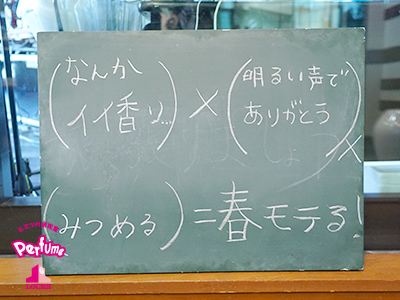 (なんか
イイ香り…)
×
(明るい声で
ありがとう)
×
(みつめる)=春モテる!
Perfume